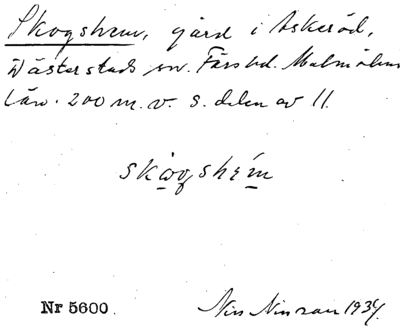 Skogshem, gård i Askeröd,
Västerstads sn. Färs hd. Malmöhus
Län. 200 m. v. s. delen av 11.
skogshem
Nr 5600
Nils Ninzau 1934.